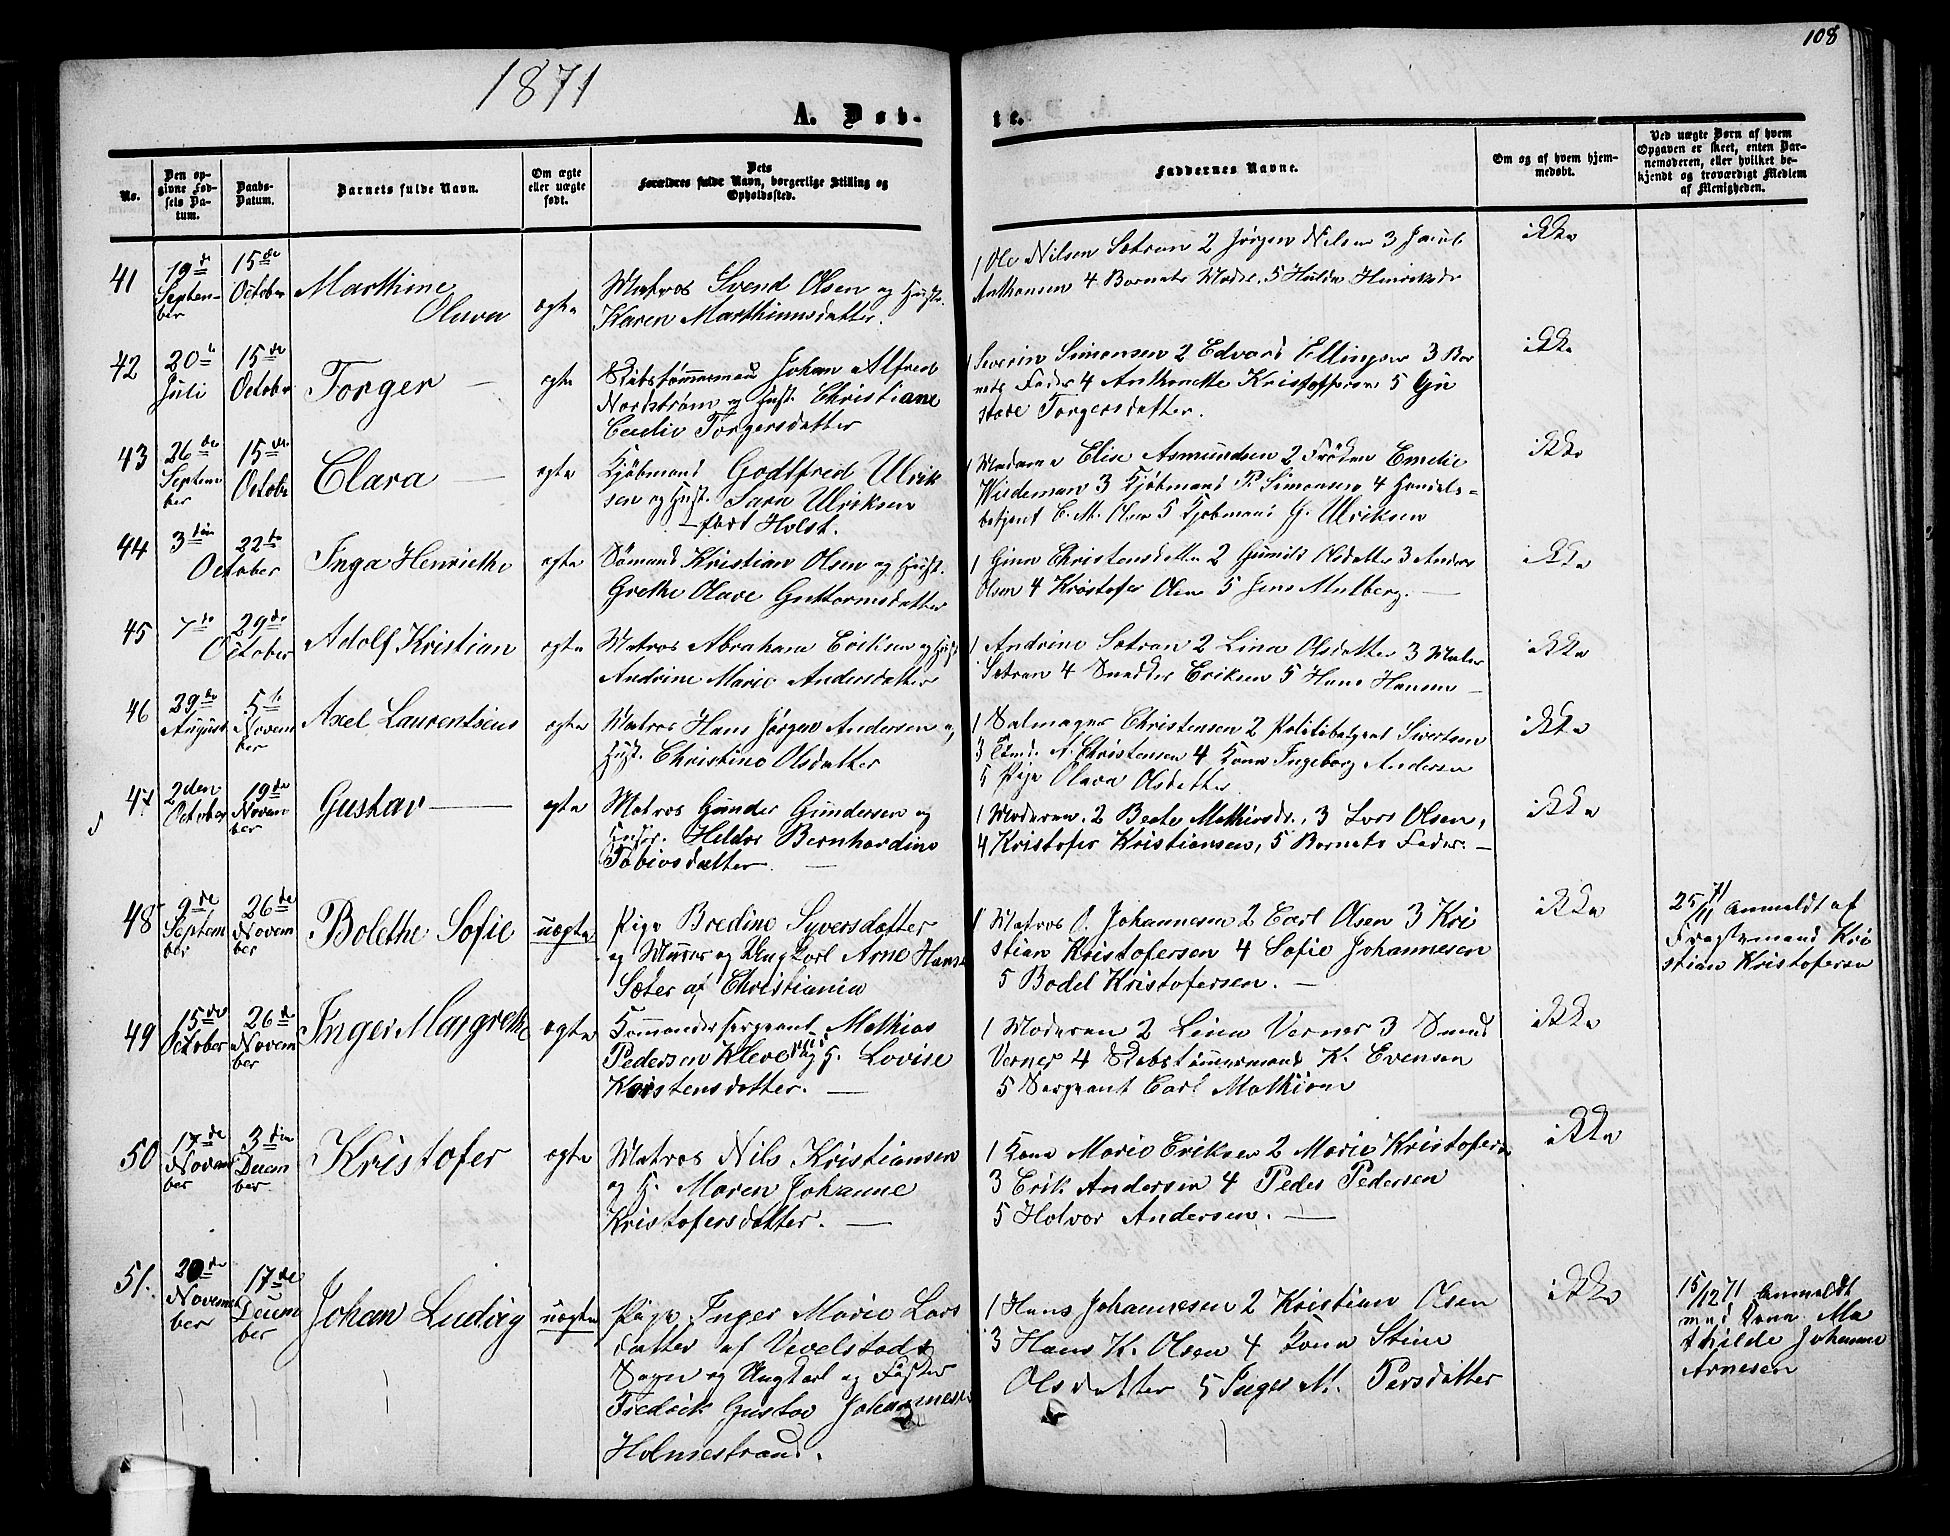 108
1871
A. Døb-
te.
No.
Den op-
givne Fød-
sels Da-
tum.
Daabs-
Datum.
Barnets fulde Navn.
Om ægte
eller uægte
født.
Dets
Forældres fulde Navn, borgerlige Stilling og
Opholdssted.
Faddernes Navne.
Om og af hvem hjem-
medøbt.
Ved uægte Børn af hvem
Opgaven er skeet, enten Bar-
nemoderen, eller hvilket be-
kjendt og troværdigt Medlem
af Menigheden.
41
19de
Septem-
ber
15de
October
Marthine
Olava
ægte
Matros Svend Olsen og Hust.
Karen Marthinusdatter.
1 Ole Nilsen Sætran 2 Jørgen Nilsen 3 Jacob
Anthonsen 4 Barnets Moder 5 Hulda
ikke
42
20de
Juli
15de
October
Torger —
ægte
Skibstømmermand Johan Alfred
Nordstrøm og Hust. Christiane
Torgersdatter
1 Severin Simonsen 2 Edvard Ellingsen 3 Bar
nets Fader 4 Anthonette Kristoffersen 5 Gu
Torgersdatter.
ikke
43
26de
Septem
ber
15de
October
Clara —
ægte
Kjøbmand Godtfred Ulrik
sen og Hust. Sara Ulriksen
— født Holst.
1 Madame Elise Asmundsen 2 Frøken Emelie
Wiedeman 3 Kjøbmand P. Simonsen 4 Handels-
betjent C. M. Olsen 5 Kjøbmand G. Ulriksen
ikke
44
3die
October
22de
Inga Henriethe
ægte
Sømand Kristian Olsen og Hust.
Grethe Olave Guttormsdatter
1 Gina Christensdatter 2 Gunild Olsdatter 3 Anders
Olsen 4 Kristofer Olsen 5 Jens Mulberg. —
ikke
45
7de
October
29de
Adolf Kristian
ægte
Matros Abraham Eriksen og Hust
Andrine Marie Andersdatter
1 Andrine Sætran 2 Lina Olsdatter 3 Maler
Sætran 4 Snedker Eriksen 5 Hans Hansen —
ikke
46
29de
August
5te
Novem
ber
Axel Laurentsius
ægte
Matros Hans Jørgen Andersen og
Hust. Christine Olsdatter
1 Salmager Christensen 2 Politibetjent Sivertsen
3 A. Christensen 4 Kona Ingeborg Andersen
5 Pige Olava Olsdatter
ikke
47
2den
October
19de
Novem
ber
Gustav —
ægte
Matros Gunder Gundersen og
Hustr. Hilda Bernhardine
Tobiasdatter —
1 Moderen, 2 Beate Mathiasd., 3 Lars Olsen,
4 Kristofer Kristiansen, 5 Barnets Fader. —
ikke
48
9de
Septem
ber
26de
Novem
ber
Bolethe Sofie
uægte
Pige Bredine Syversdatter
og Murer og Ungkarl Arne Hans
Sæter af Christiania
1 Matros O. Johannesen 2 Carl Olsen 3 Kri
stian Kristofersen 4 Sofie Johannesen
5 Bodel Kristofersen. —
ikke
25/11 71 Anmeldt af
Kri
stian Kristofersen
49
15de
October
26de
Novem
ber
Inger Margrethe
ægte
Kommandersergeant Mathias
Pedersen Kleve og H. Lovise
Karstensdatter. —
1 Moderen 2 Lina Verner 3 Smed
Verner 4 Skibstømmermand K. Evensen
5 Sergeant Carl Mathisen
ikke
50
17de
Novem
ber
3die
Decem
ber
Kristofer
ægte
Matros Nils Kristiansen
og H. Maren Johanne
Kristofersdatter. —
1 Kona Marie Eriksen 2 Marie Kristofersen
3 Erik Andersen 4 Peder Pedersen
5 Halvor Andersen. —
ikke
51.
20de
Novem
ber
17de
Decem
ber
Johan Ludvig
uægte
Pige Inger Marie Lars
datter af Vivelstads
Sogn og Ungkarl og Fisker
Fredrik Gustav Johannesen
Holmestrand.
1 Hans Johannesen 2 Kristian Olsen
3 Hans K. Olsen 4 Kona Stine
Olsdatter 5 Inger M. Persdatter
ikke
15/12 71 Anmeldt
med Kona Ma
thilde Johanne
Arnesen